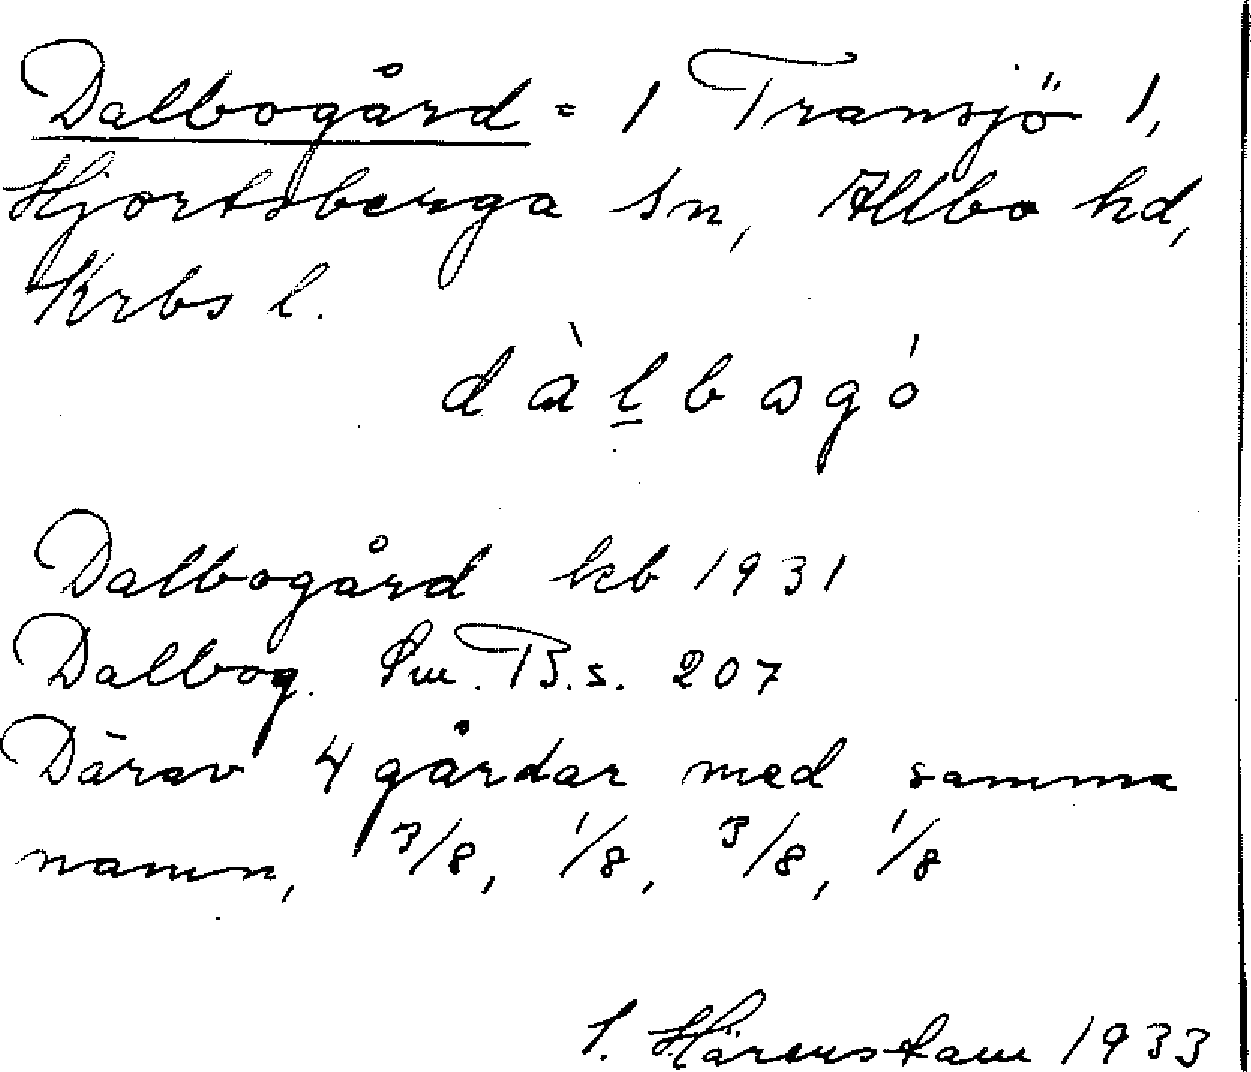 Dalbogård = 1 Transjö 1,
Hjortsberga sn, Allbo hd,
Krbs l.
dàl̲bagó
Dalbogård kb 1931
Dalbog. Sm. B.s. 207
Därav 4 gårdar med samma
namn, 3/8, 1/8, 3/8, 1/8
S. Härenstam 1933